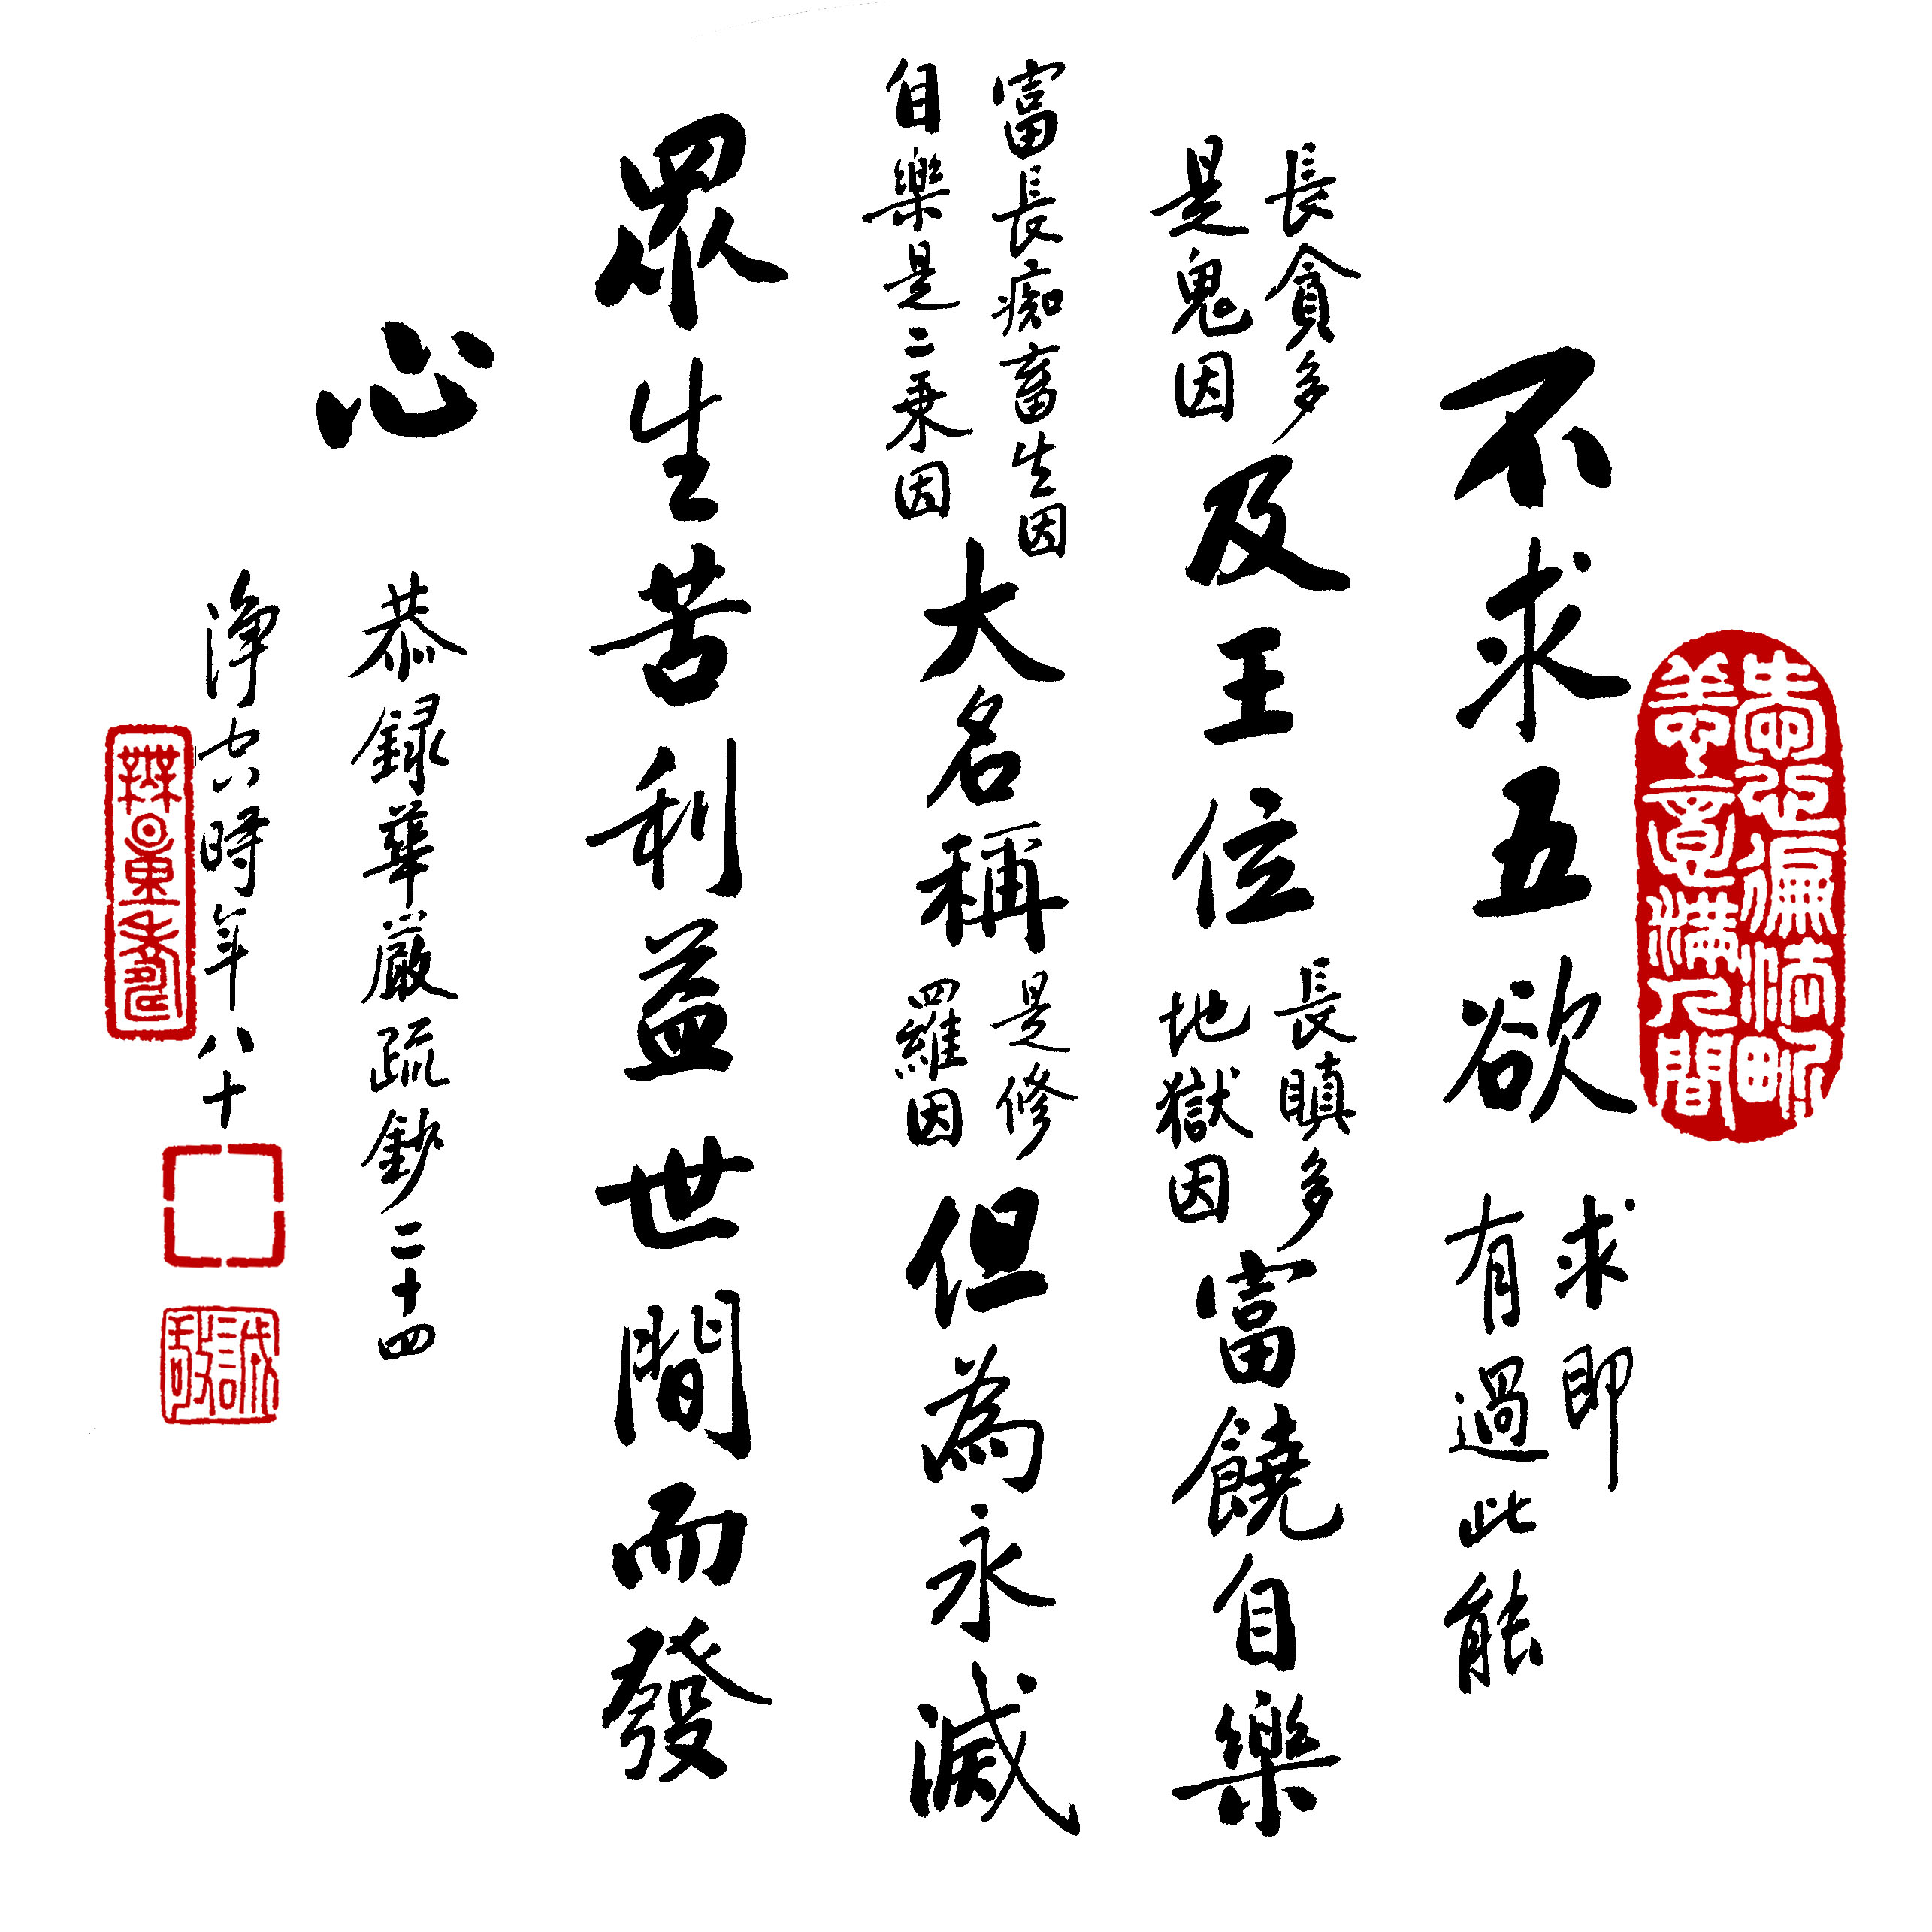 愛心徧法界
善意滿人間
不求五欲
求即
有過此能
長貪多
是鬼因
及王位
長瞋多
地獄因
富饒自樂
富長痴畜生因
自樂是二乘因
大名稱
是修
羅因
但為永滅
眾生苦利益世間而發
心
恭録華嚴疏鈔二十四
淨空時年八十
無量壽
誠敬